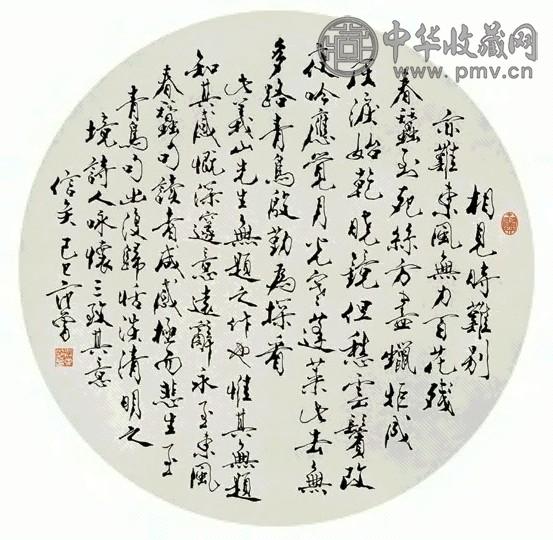 中华收藏网
www.pmv.cn
相見時難別
亦難東風無力百花殘
春蠶至死絲方盡蠟炬成
灰淚始乾曉鏡但愁雲鬢改
夜吟應覺月光寒蓬萊此去無
多路青鳥殷勤為探看
此義山先生無題之什也惟其無題
知其感慨深邃意遠辭永至東風
春蠶句讀者咸感極而悲生至
青鳥句出復歸恬淡清明之
境詩人咏懷三致其意
信矣己巳范曾